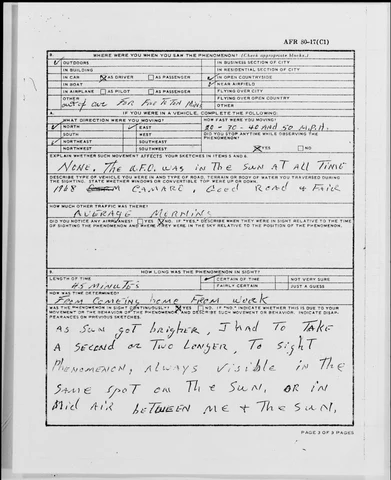 AFR 80-17(C1)
WHERE WERE YOU WHEN YOU SAW THE PHENOMENON? (Check appropriate blocks.)
OUTDOORS IN BUSINESS SECTION OF CITY
IN BUILDING IN RESIDENTIAL SECTION OF CITY
IN CAR AS DRIVER AS PASSENGER IN OPEN COUNTRYSIDE
IN BOAT AS PASSENGER NEAR AIRFIELD
IN AIRPLANE AS PILOT AS PASSENGER FLYING OVER CITY
OTHER FLYING OVER OPEN COUNTRY
out of car FOR FIVE TO TEN OTHER
A. IF YOU WERE IN A VEHICLE, COMPLETE THE FOLLOWING:
WHAT DIRECTION WERE YOU MOVING? HOW FAST WERE YOU MOVING?
NORTH EAST 20-30-40 AND 50 M.P.H.
SOUTH WEST DID YOU STOP ANYTIME WHILE OBSERVING THE
NORTHEAST SOUTHEAST PHENOMENON?
NORTHWEST SOUTHWEST YES NO
EXPLAIN WHETHER SUCH MOVEMENT AFFECTS YOUR SKETCHES IN ITEMS 5 AND 6.
NONE. THE U.F.O. WAS IN THE SUN AT ALL TIME
DESCRIBE TYPE OF VEHICLE YOU WERE IN AND TYPE OF ROAD, TERRAIN OR BODY OF WATER YOU TRAVERSED DURING
THE SIGHTING. STATE WHETHER WINDOWS OR CONVERTIBLE TOP WERE UP OR DOWN.
1968 CAMARO, Good Road & FAIR
HOW MUCH OTHER TRAFFIC WAS THERE?
AVERAGE MORNING
DID YOU NOTICE ANY AIRPLANES? YES NO. IF "YES," DESCRIBE WHEN THEY WERE IN SIGHT RELATIVE TO THE TIME
OF SIGHTING THE PHENOMENON AND WHERE THEY WERE IN THE SKY RELATIVE TO THE POSITION OF THE PHENOMENON.
HOW LONG WAS THE PHENOMENON IN SIGHT?
LENGTH OF TIME CERTAIN OF TIME NOT VERY SURE
45 MINUTES FAIRLY CERTAIN JUST A GUESS
HOW WAS TIME DETERMINED?
FROM COMEING home FROM work
WAS THE PHENOMENON IN SIGHT CONTINUOUSLY? YES NO. IF "NO," INDICATE WHETHER THIS IS DUE TO YOUR
MOVEMENT OR THE BEHAVIOR OF THE PHENOMENON, AND DESCRIBE SUCH MOVEMENT OR BEHAVIOR. INDICATE DISAP-
PEARANCES ON PREVIOUS SKETCHES.
AS SUN got brigher, I had To TAKE
A SECOND or TWO LONGER, TO SIGHT
PHENOMENON, ALWAYS VISIBLE IN THE
SAME SPOT ON THE SUN. OR IN
MID AIR between me & THE SUN.
PAGE 3 OF 5 PAGES